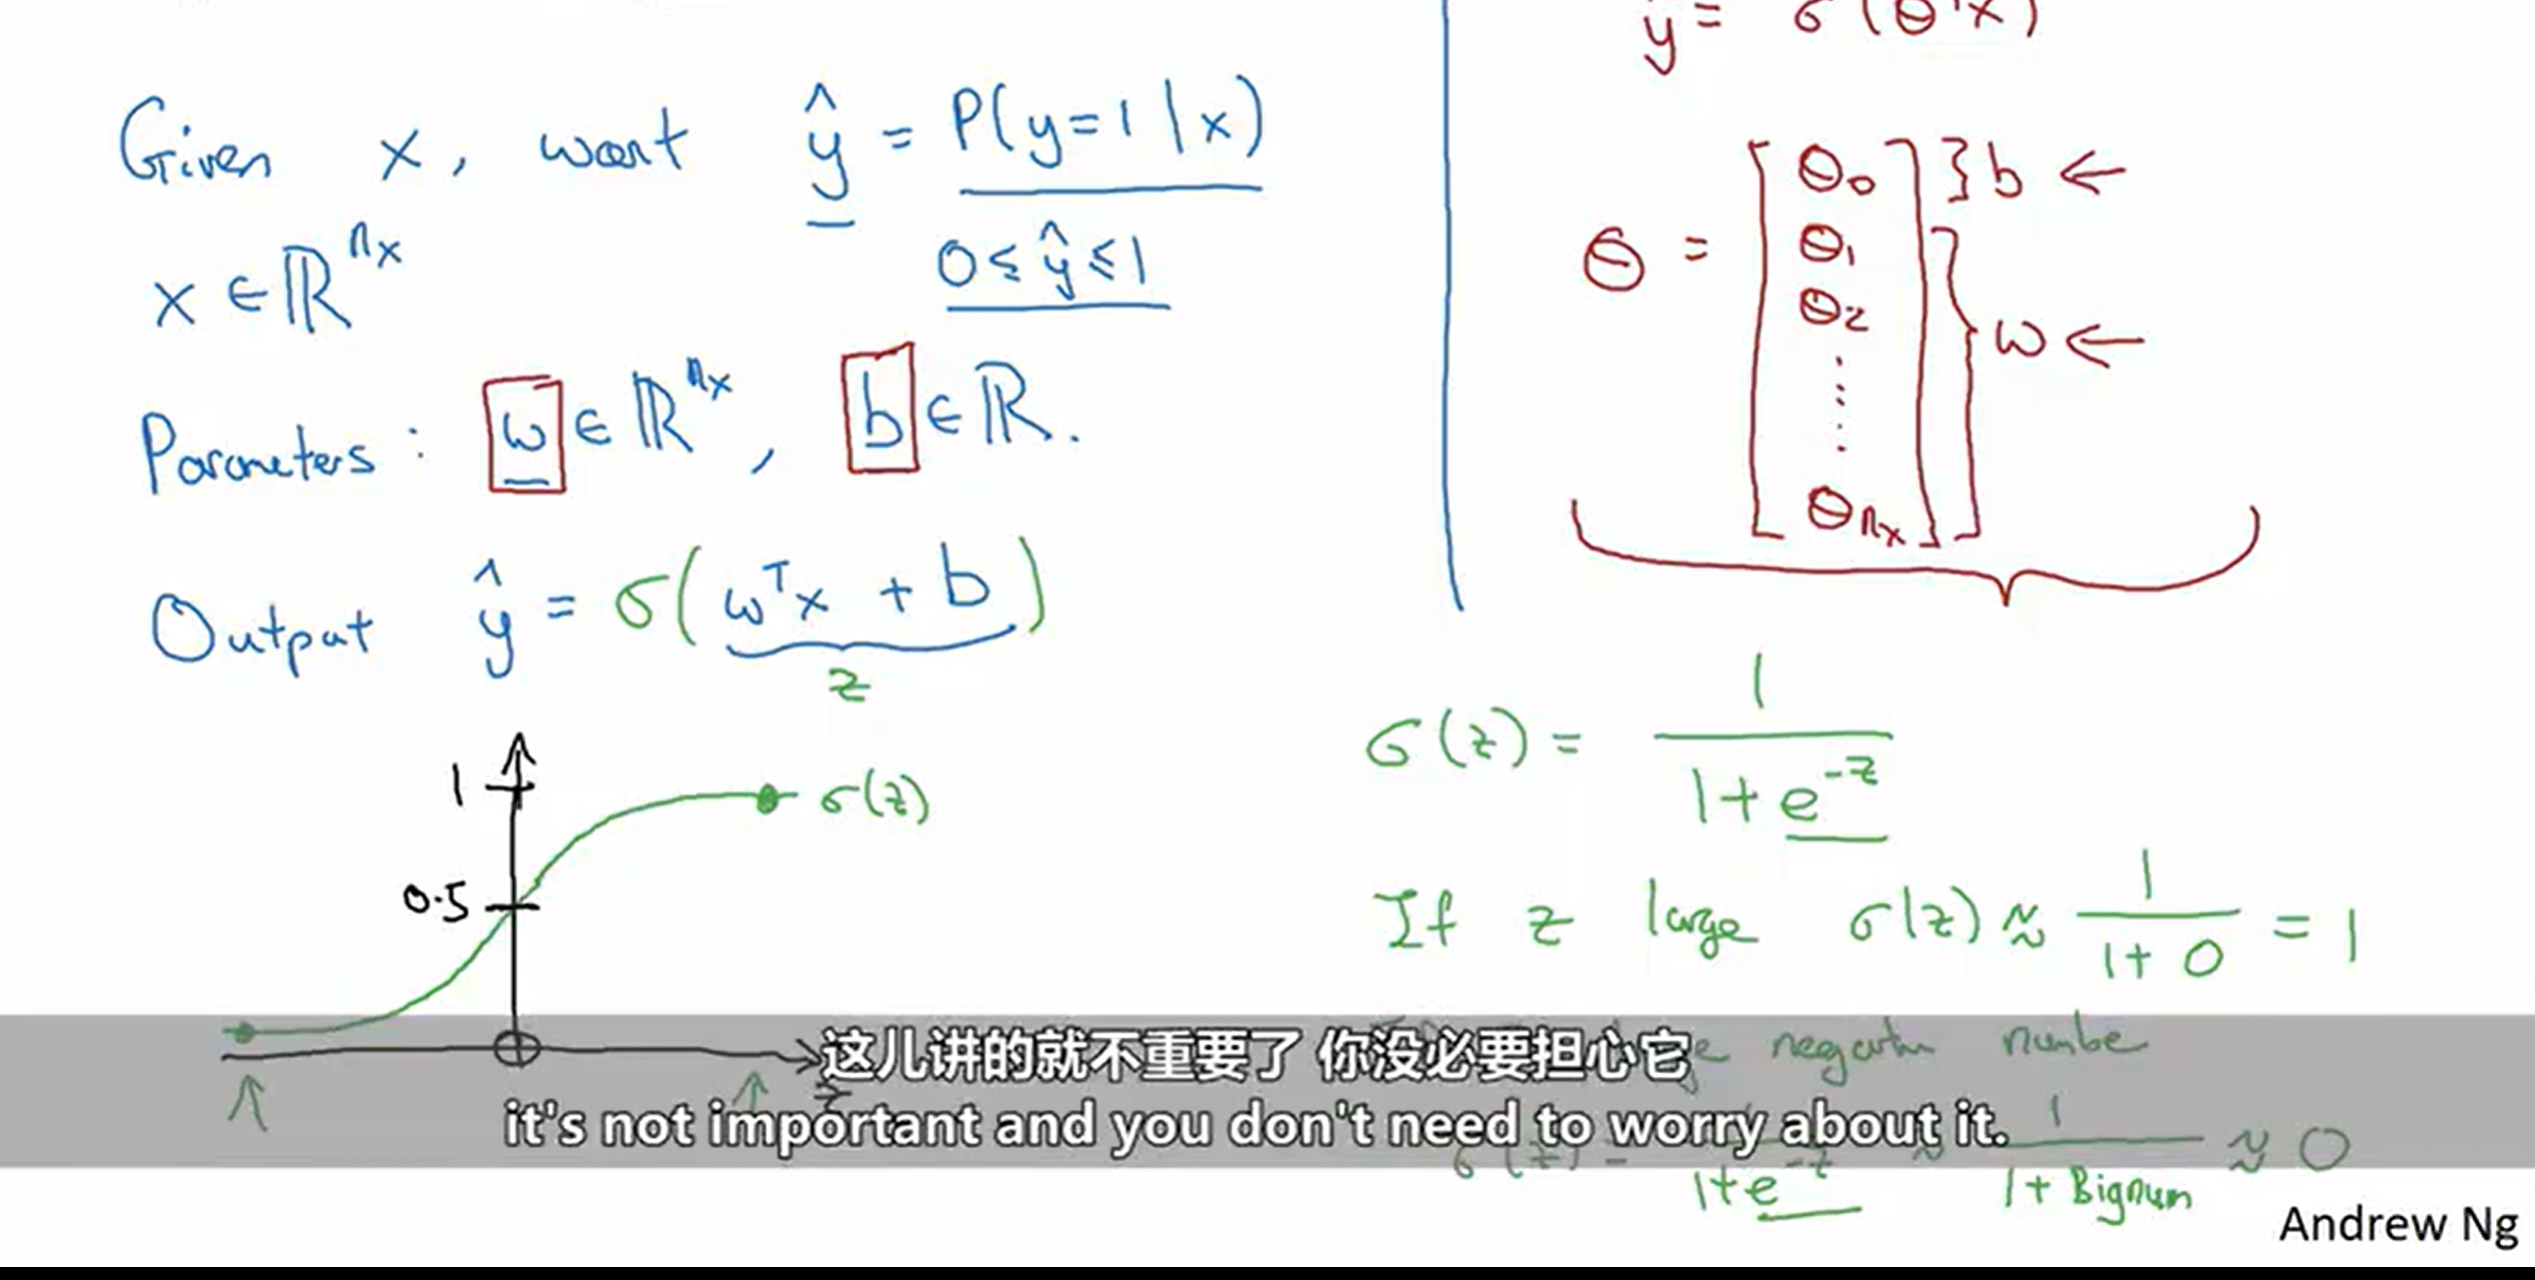 Given x, want ŷ = P(y=1|x)
0 ≤ ŷ ≤ 1
x ∈ ℝ^{nx}
Parameters: w ∈ ℝ^{nx}, b ∈ ℝ.
Output ŷ = σ(wᵀx + b)
z
1
σ(z)
0.5
z
ŷ = σ(θᵀx)
θ = [θ₀ θ₁ θ₂ ⋮ θ_{nx}]
} b ←
} w ←
σ(z) = 1 / (1 + e^{-z})
If z large σ(z) ≈ 1 / (1 + 0) = 1
negative number
σ(z) = 1 / (1 + e^{-z}) ≈ 1 / (1 + Bignum) ≈ 0
这儿讲的就不重要了 你没必要担心它
it's not important and you don't need to worry about it.
Andrew Ng